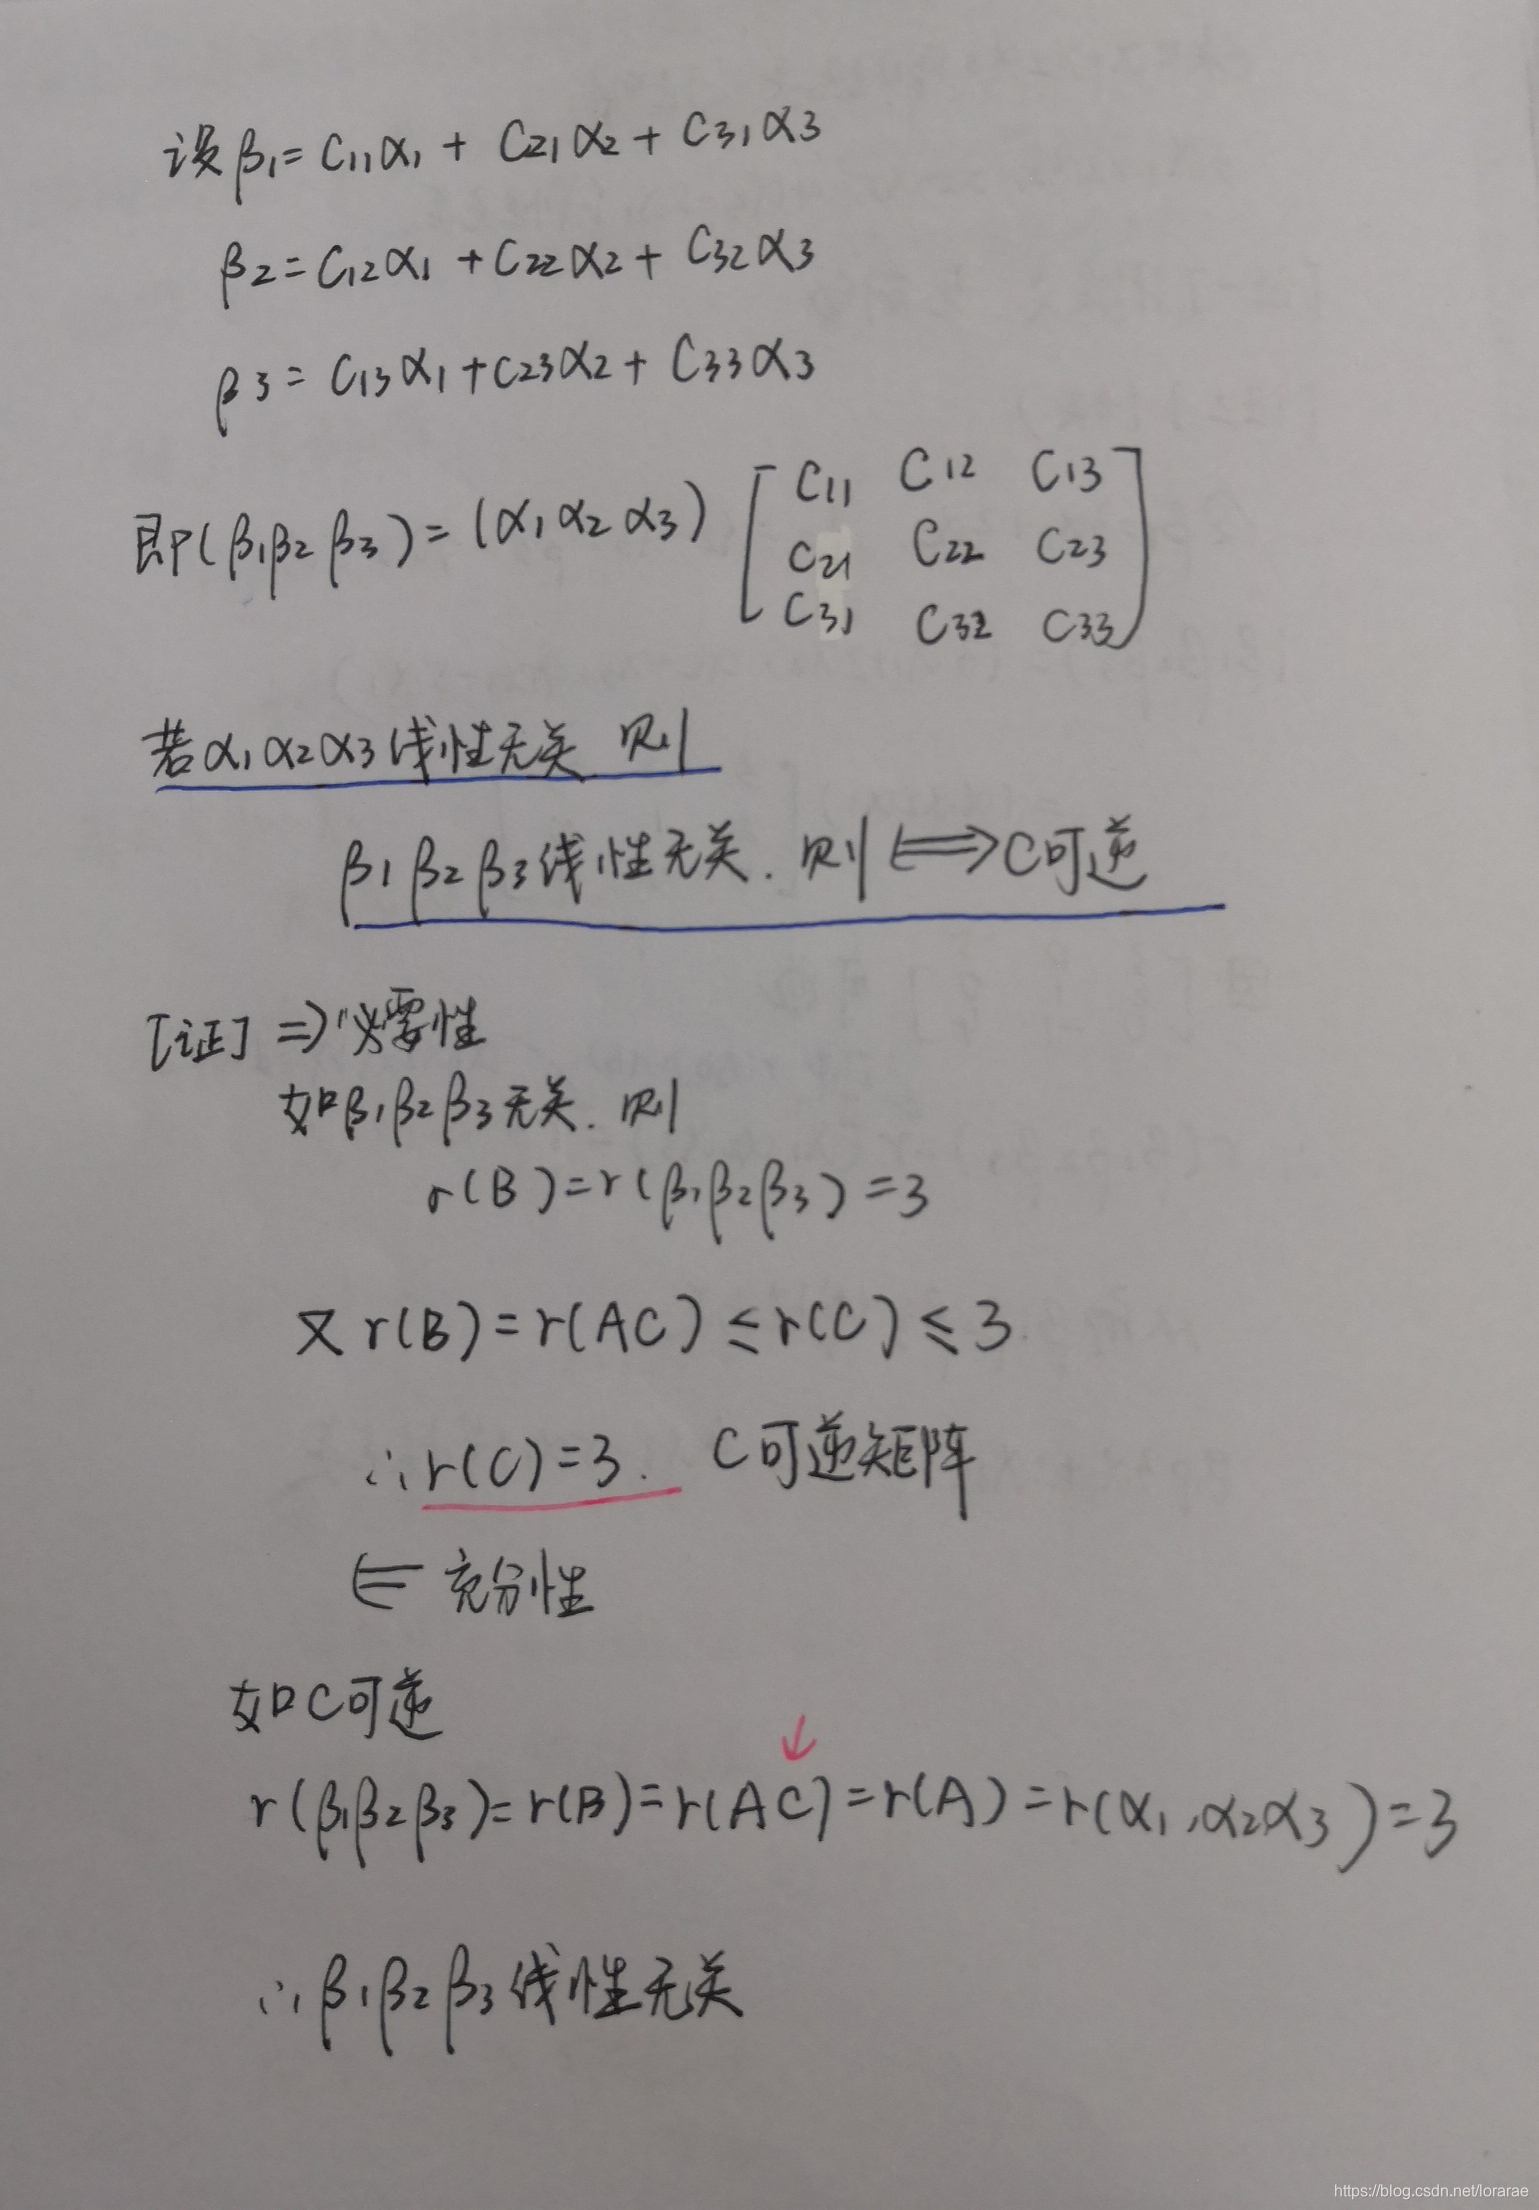 设β1=C11α1+ C21α2+C31α3
β2=C12α1+C22α2+C32α3
β3=C13α1+C23α2+C33α3
即(β1β2 β3)=(α1α2α3) [C11 C12 C13
C21 C22 C23
C31 C32 C33]
若α1α2α3线性无关 则
β1β2β3线性无关. 则⟺C可逆
[证] ⇒"必要性
如β1β2β3无关. 则
r(B)=r(β1β2β3)=3
又r(B)=r(AC)≤r(C)≤3
∴r(C)=3. C可逆矩阵
⇐ 充分性
如C可逆
↓
r(β1β2β3)=r(B)=r(AC)=r(A)=r(α1,α2α3)=3
∴β1β2β3线性无关
https://blog.csdn.net/lorarae